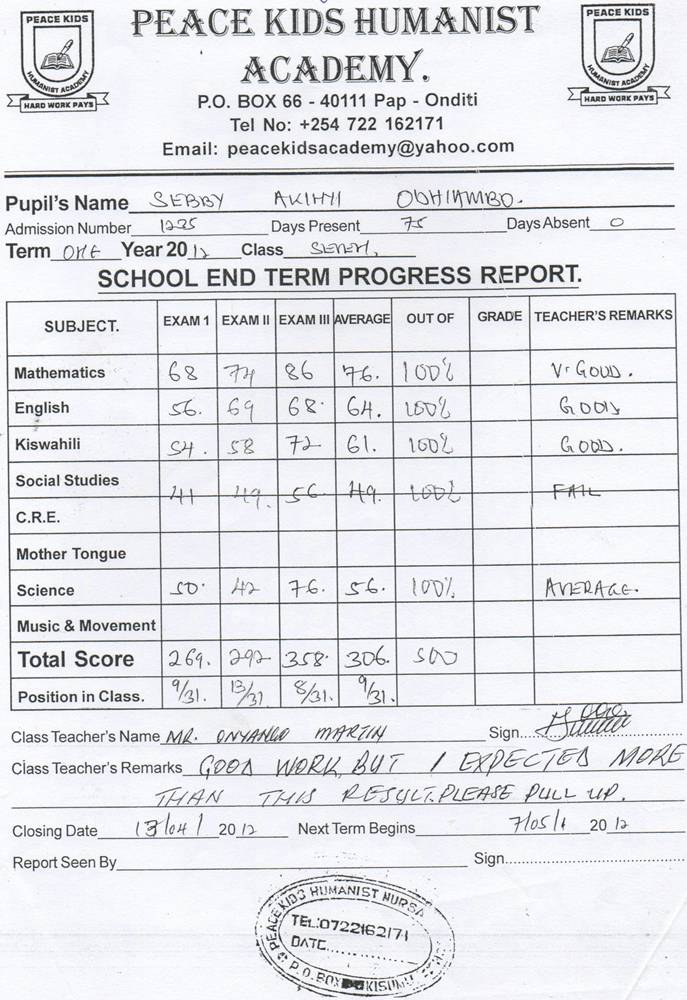 PEACE KIDS
HUMANIST ACADEMY
HARD WORK PAYS
PEACE KIDS HUMANIST
ACADEMY.
PEACE KIDS
HUMANIST ACADEMY
HARD WORK PAYS
P.O. BOX 66 - 40111 Pap - Onditi
Tel No: +254 722 162171
Email: peacekidsacademy@yahoo.com
Pupil's Name SEBBY AKINYI ODHIAMBO.
Admission Number 1225 Days Present 75 Days Absent 0
Term ONE Year 2012 Class SEVEN,
SCHOOL END TERM PROGRESS REPORT.
SUBJECT. EXAM 1 EXAM II EXAM III AVERAGE OUT OF GRADE TEACHER'S REMARKS
Mathematics 68 74 86 76. 100% V. GOOD.
English 56. 69 68. 64. 100% GOOD
Kiswahili 54. 58 72 61. 100% GOOD.
Social Studies 41 49. 56 49. 100% FAIL
C.R.E.
Mother Tongue
Science 50. 42 76. 56. 100% AVERAGE.
Music & Movement
Total Score 269. 292 358. 306. 500
Position in Class. 9/31. 13/31 8/31. 9/31.
Class Teacher's Name MR. ONYANGO MARTIN Sign...
Class Teacher's Remarks GOOD WORK, BUT I EXPECTED MORE
THAN THIS RESULT. PLEASE PULL UP.
Closing Date 13/04/ 2012 Next Term Begins 7/05/ 2012
Report Seen By Sign...
PEACE KIDS HUMANIST NURSA
TEL:0722162171
DATE
P.O.BOX KISUMU